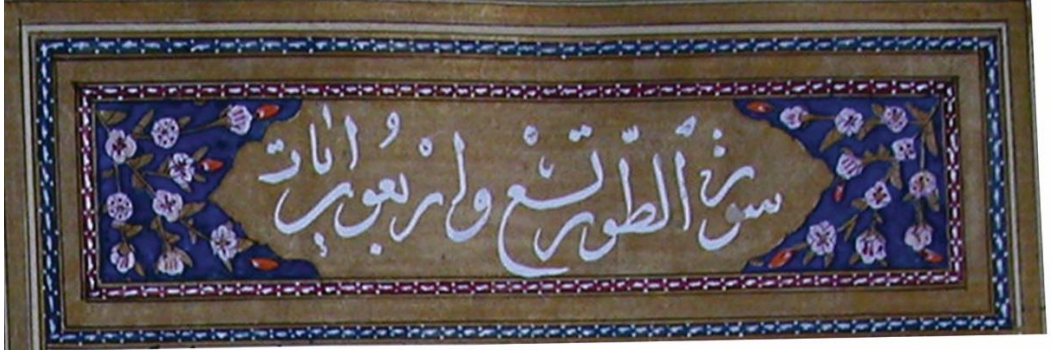 سورة الطّور تسع واربعون اٰيات